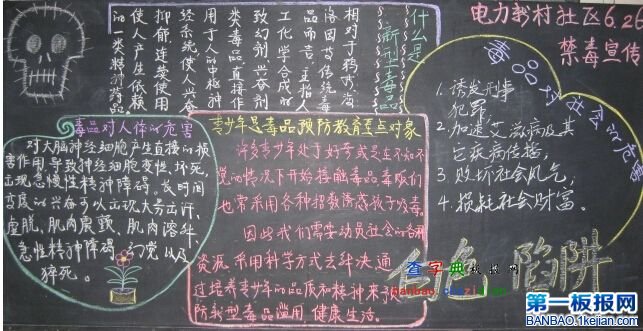 电力新村社区6.26
禁毒宣传
什么是
新型毒品
相对于鸦片、海
洛因等传统毒
品而言,主指人
工化学合成的
致幻剂、兴奋剂
类毒品,直接作
用于人的中枢神
经系统,使人兴奋
抑郁,连续使用
使人产生依赖
的一类精神药品
毒品对社会的危害
1、诱发刑事
犯罪,
2、加速艾滋病及其
它疾病传播,
3、败坏社会风气,
4、损耗社会财富。
毒品对人体的危害
对大脑神经细胞产生直接的损
害作用,导致神经细胞变性、坏死,
出现急慢性精神障碍。长时间
高度的兴奋可以出现大量出汗、
虚脱、肌肉震颤、肌肉溶斗、
急性精神障碍、幻觉以及
猝死。
青少年是毒品预防教育重点对象
许多青少年处于好奇或是在不知不
觉的情况下开始接触毒品毒贩们
也常采用各种招数诱惑孩子吸毒。
因此我们需要动员社会的各种
资源,采用科学方式去解决通
过培养青少年的品质和精神来预
防新型毒品滥用 健康生活。
白色陷阱
查字典教程网
第一板报网
BANBAO.1kejian.com